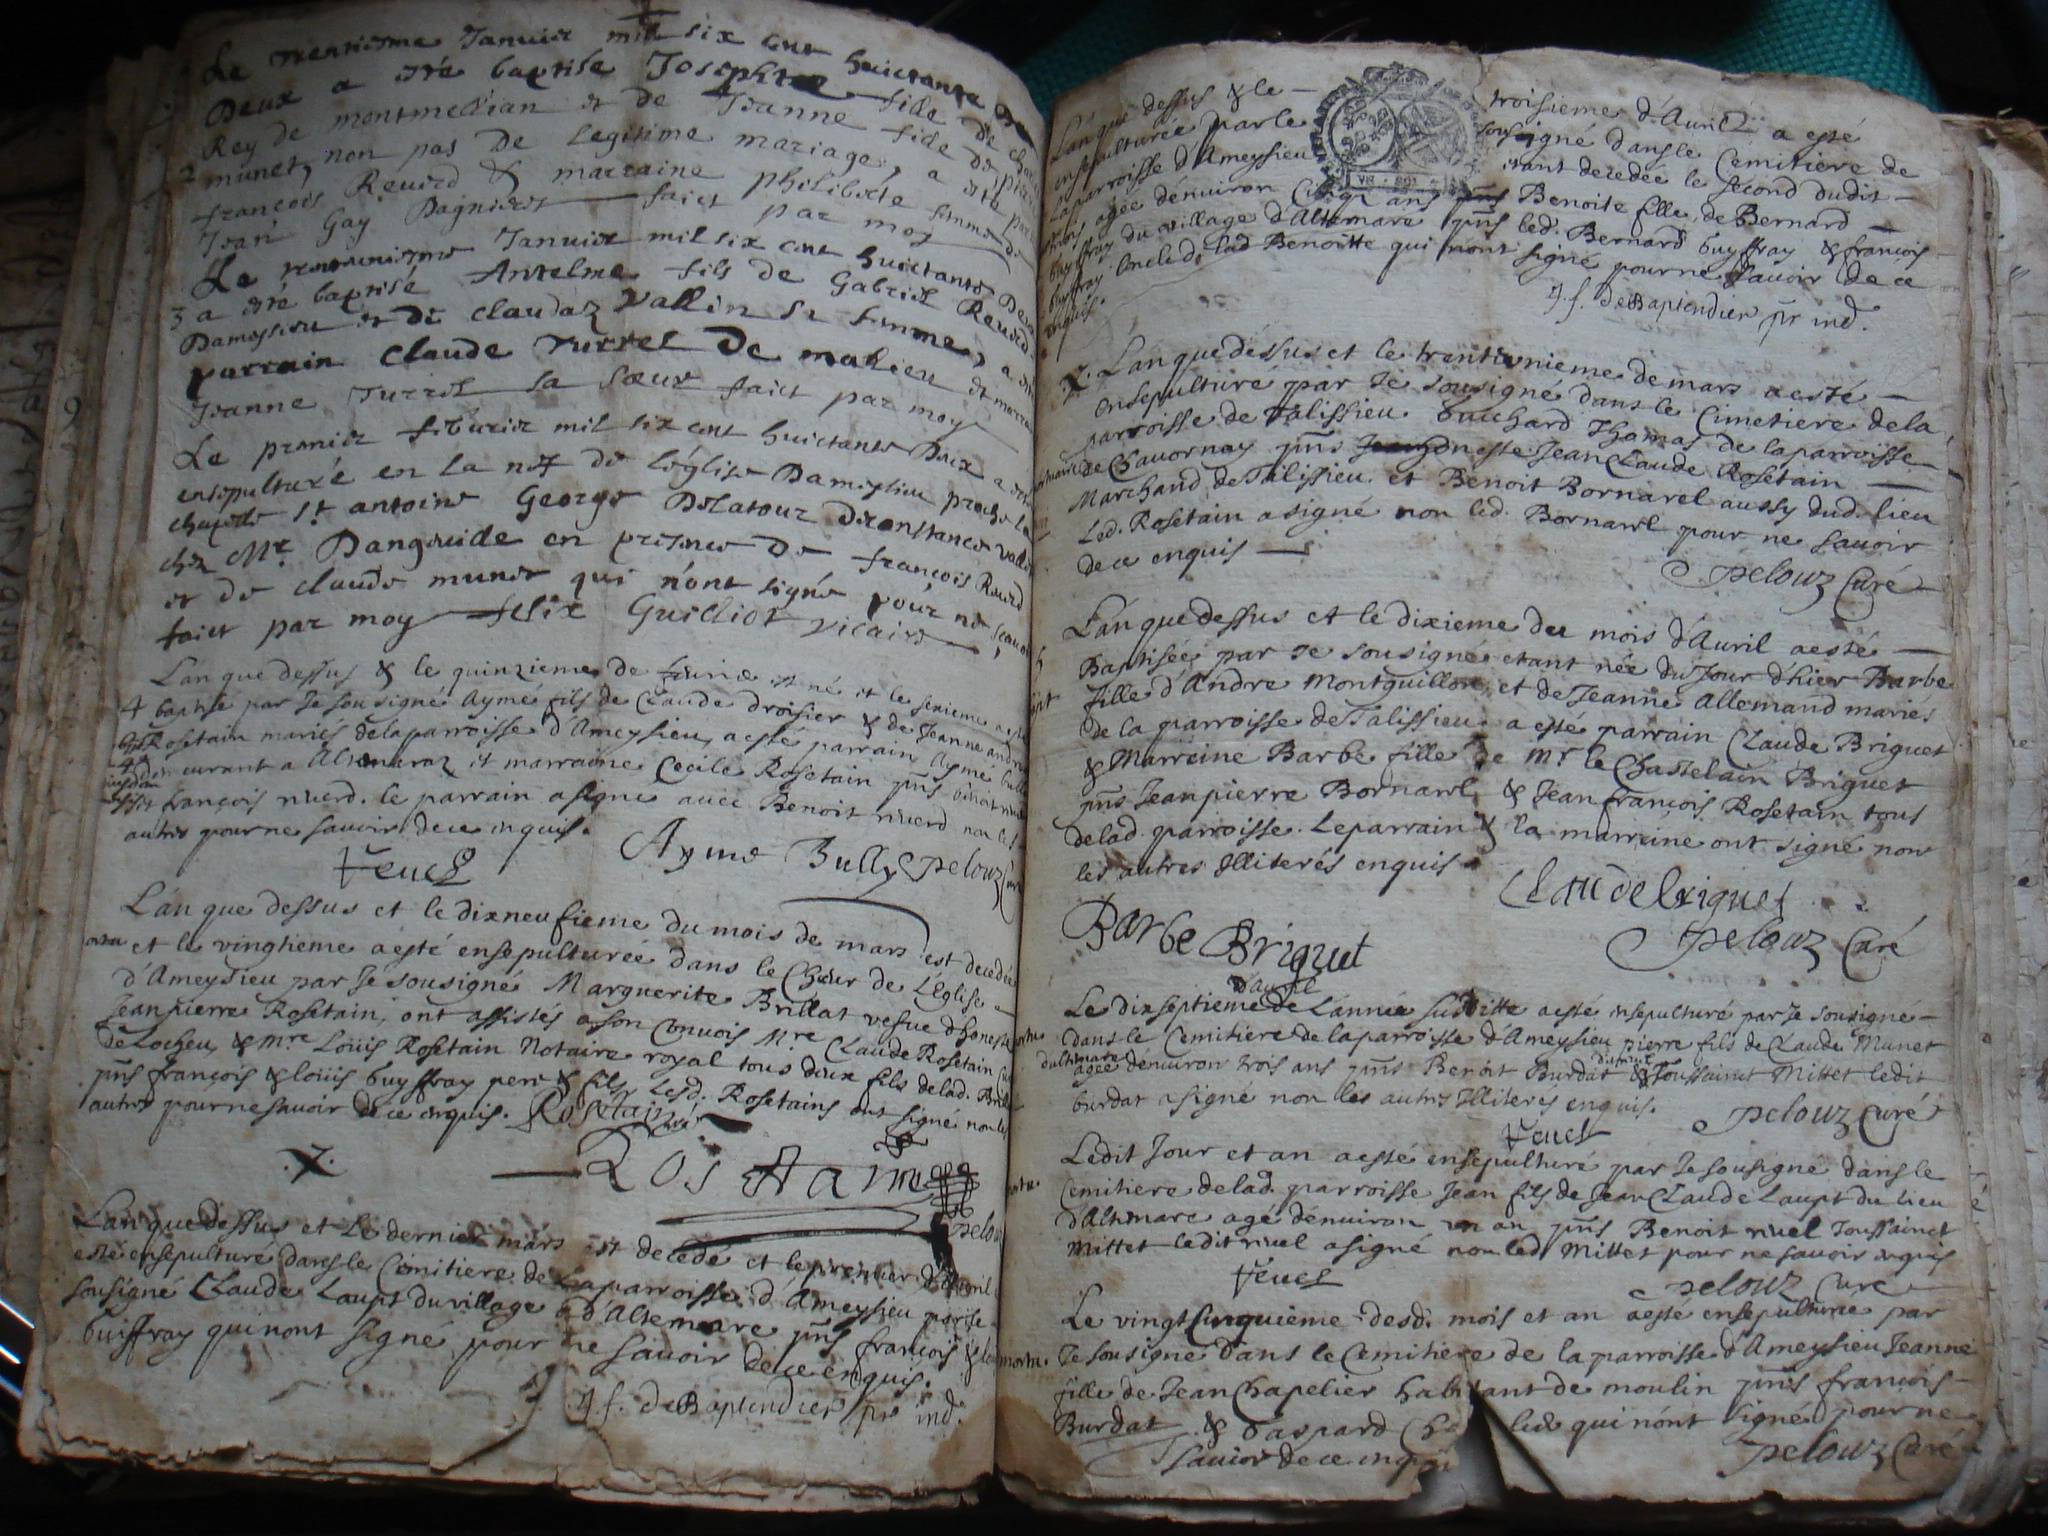 Le trentiesme Januier mil six cent huictante
Deux a esté baptisé Josephte fille de
Rey de montmeillan et de Jeanne fille de
2 munet, non pas de legitime mariage, a esté
françois Reuerd & marraine philiberte femme de
Jean Gay Dagnieres faict par moy
Le Januier mil six cent huictante Deux
3 a esté baptisé Antelme fils de Gabriel Reuerd
Damessieu et de claudaz vallin sa femme, a esté
parrain claude Turrel De malieu et marraine
Jeanne Turrel sa sœur faict par moy
Le premier feburier mil six cent huictante Deux a esté
ensepulturé en la nef de léglise Dameysieu proche la
chapelle St antoine George Delatour
chez Mr. Dangeuile en presence de françois Reuerd
et de claude munet qui n'ont signé pour ne scauoir
faict par moy felix Guilliot vicaire
L'an que dessus & le quinzieme de est né et le sezieme a esté
4 baptisé par Je sousigné Aymé fils de Claude Droisier & de Jeanne
Rosetain mariés de la parroisse d'Ameysieu, a esté parrain Ayme bully
demeurant a Altemaraz et marraine Cecile Rosetain pñs benoit
françois riuerd. le parrain a signe auec Benoit riuerd non les
autres pour ne sauoir de ce enquis.
Ayme Bully pelouz
L'an que dessus et le dixneufieme du mois de mars est decedée
et le vingtieme a esté ensepulturée dans le Chœur de L'Eglise
d'Ameysieu par Je sousigné Marguerite Brillat vefue d'honeste
Jeanpierre Rosetain, ont assistés a son conuois Mre Claude Rosetain
de Locheu, & mre Loüis Rosetain Notaire royal tous deux fils de lad. Brillat
pñs françois & loüis buyffray pere & fils, Lesd. Rosetains ont signé non les
autres pour ne sauoir de ce enquis. Rosetain
Rosetain
pelouz
L'an que dessus et Le dernier mars est decedé et le premier d'Auril
esté ensepulturé dans le Cimitiere de la parroisse d'Ameysieu par le
sousigné Claude Laupt du village d'Altemare pñs françois &
buiffray qui n'ont signé pour ne sauoir de ce enquis.
J. f. deBaptendier pr ind.
L'an que dessus & le troisieme d'Auril a esté
ensepulturée par le sousigné dans le Cemitiere de
la parroisse d'Ameysieu etant decedée le second dudit
mois agée denuiron Cinq ans Benoite fille de Bernard
buyffray du village d'Altemare pñs led. Bernard buyffray & françois
buyffray oncle de lad Benoitte qui n'ont signé pour ne sauoir de ce
enquis.
J. f. deBaptendier pr ind.
L'an que dessus et le trentunieme de mars a esté
ensepulturé par Je sousigné dans le Cimetiere de la
parroisse de Talissieu Bucchard Thomas de la parroisse
de Chauornay pñs honeste Jean Claude Rosetain
Marchand de Talissieu et Benoit Bornarel aussy dud. lieu
Led. Rosetain a signé non led. Bornarel pour ne sauoir
de ce enquis
pelouz Curé
L'an que dessus et le dixieme du mois d'Auril a esté
Baptisée par Je sousigné etant née du Jour d'hier Barbe
fille d'Andre Montguillon, et de Jeanne Allemand mariés
de la parroisse de Talissieu a esté parrain Claude Briguet
& Marreine Barbe fille de Mr le Chastelain Briguet
pñs Jeanpierre Bornarel & Jean françois Rosetain tous
de lad. parroisse. Le parrain & la marreine ont signé non
les autres Illiterés enquis
Claude briguet
Barbe Briguet
pelouz Curé
d'auril
Le dixseptieme de L'année susditte a esté ensepulturé par Je sousigné
dans le Cemitiere de la parroisse d'Ameysieu pierre fils de Claude Munet
d'altemare agée denuiron trois ans pñs Benoit Burdat & Toussainct Mittet ledit
burdat a signé non les autres Illiteres enquis.
pelouz Curé
Ledit Jour et an a esté ensepulturé par Je sousigné dans le
Cemitiere de lad. parroisse Jean fils de Jean Claude Laupt du lieu
d'Altemare agé denuiron un an pñs Benoit riuel Toussainct
Mittet ledit riuel a signé non led. Mittet pour ne sauoir enquis
pelouz Curé
Le vingtcinquieme desd. mois et an a esté ensepulturée par
Je sousigné dans le Cemitiere de la parroisse d'Ameysieu Jeanne
fille de Jean Chapelier habitant de moulin pñs françois
Burdat & Gaspard qui n'ont signé pour ne
sauoir de ce enquis
pelouz Curé